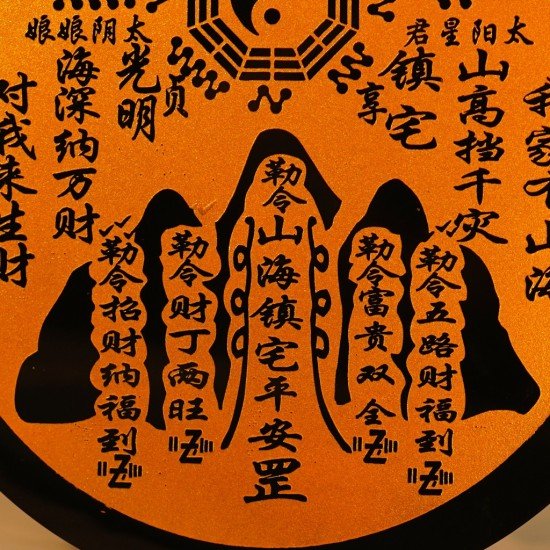 太阳星君
太阴娘娘
家 山海
山高挡千灾
镇宅
享
贞
光明
海深纳万财
我来生财
勒令五路财福到
勒令富贵双全
勒令山海镇宅平安罡
勒令财丁两旺
勒令招财纳福到